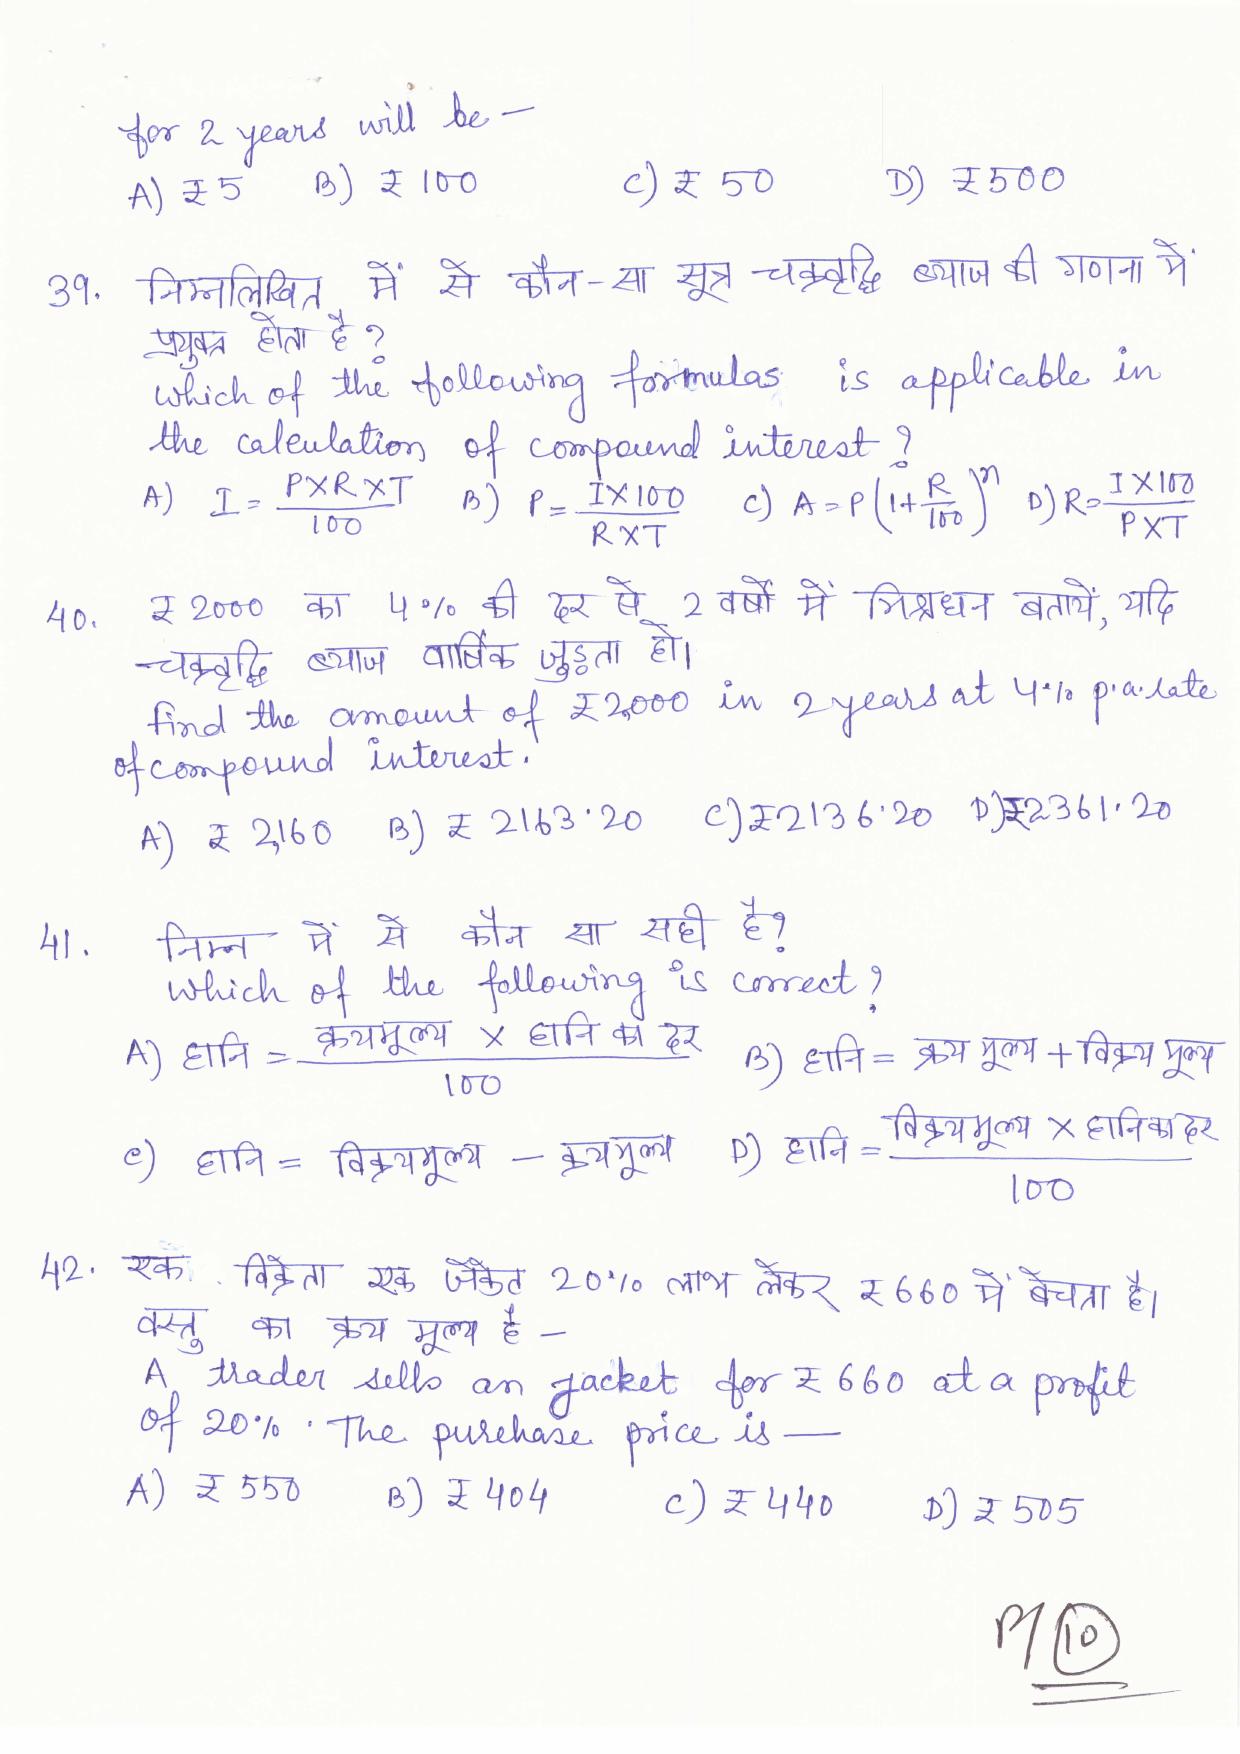 for 2 years will be —
A) ₹ 5 B) ₹ 100 C) ₹ 50 D) ₹ 500
39. निम्नलिखित में से कौन-सा सूत्र चक्रवृद्धि ब्याज की गणना में
प्रयुक्त होता है?
Which of the following formulas is applicable in
the calculation of compound interest?
A) I = P×R×T/100 B) P = I×100/R×T C) A = P(1+R/100)^n D) R = I×100/P×T
40. ₹ 2000 का 4% की दर से 2 वर्षों में मिश्रधन बतायें, यदि
चक्रवृद्धि ब्याज वार्षिक जुड़ता हो।
find the amount of ₹2,000 in 2 years at 4% p.a. rate
of compound interest.
A) ₹ 2,160 B) ₹ 2163.20 C) ₹2136.20 D) ₹2361.20
41. निम्न में से कौन सा सही है?
Which of the following is correct?
A) हानि = क्रयमूल्य × हानि का दर/100 B) हानि = क्रय मूल्य + विक्रय मूल्य
C) हानि = विक्रयमूल्य – क्रयमूल्य D) हानि = विक्रयमूल्य × हानि का दर/100
42. एक विक्रेता एक जैकेट 20% लाभ लेकर ₹ 660 में बेचता है।
वस्तु का क्रय मूल्य है –
A trader sells an jacket for ₹ 660 at a profit
of 20%. The purchase price is —
A) ₹ 550 B) ₹ 404 C) ₹ 440 D) ₹ 505
P/10